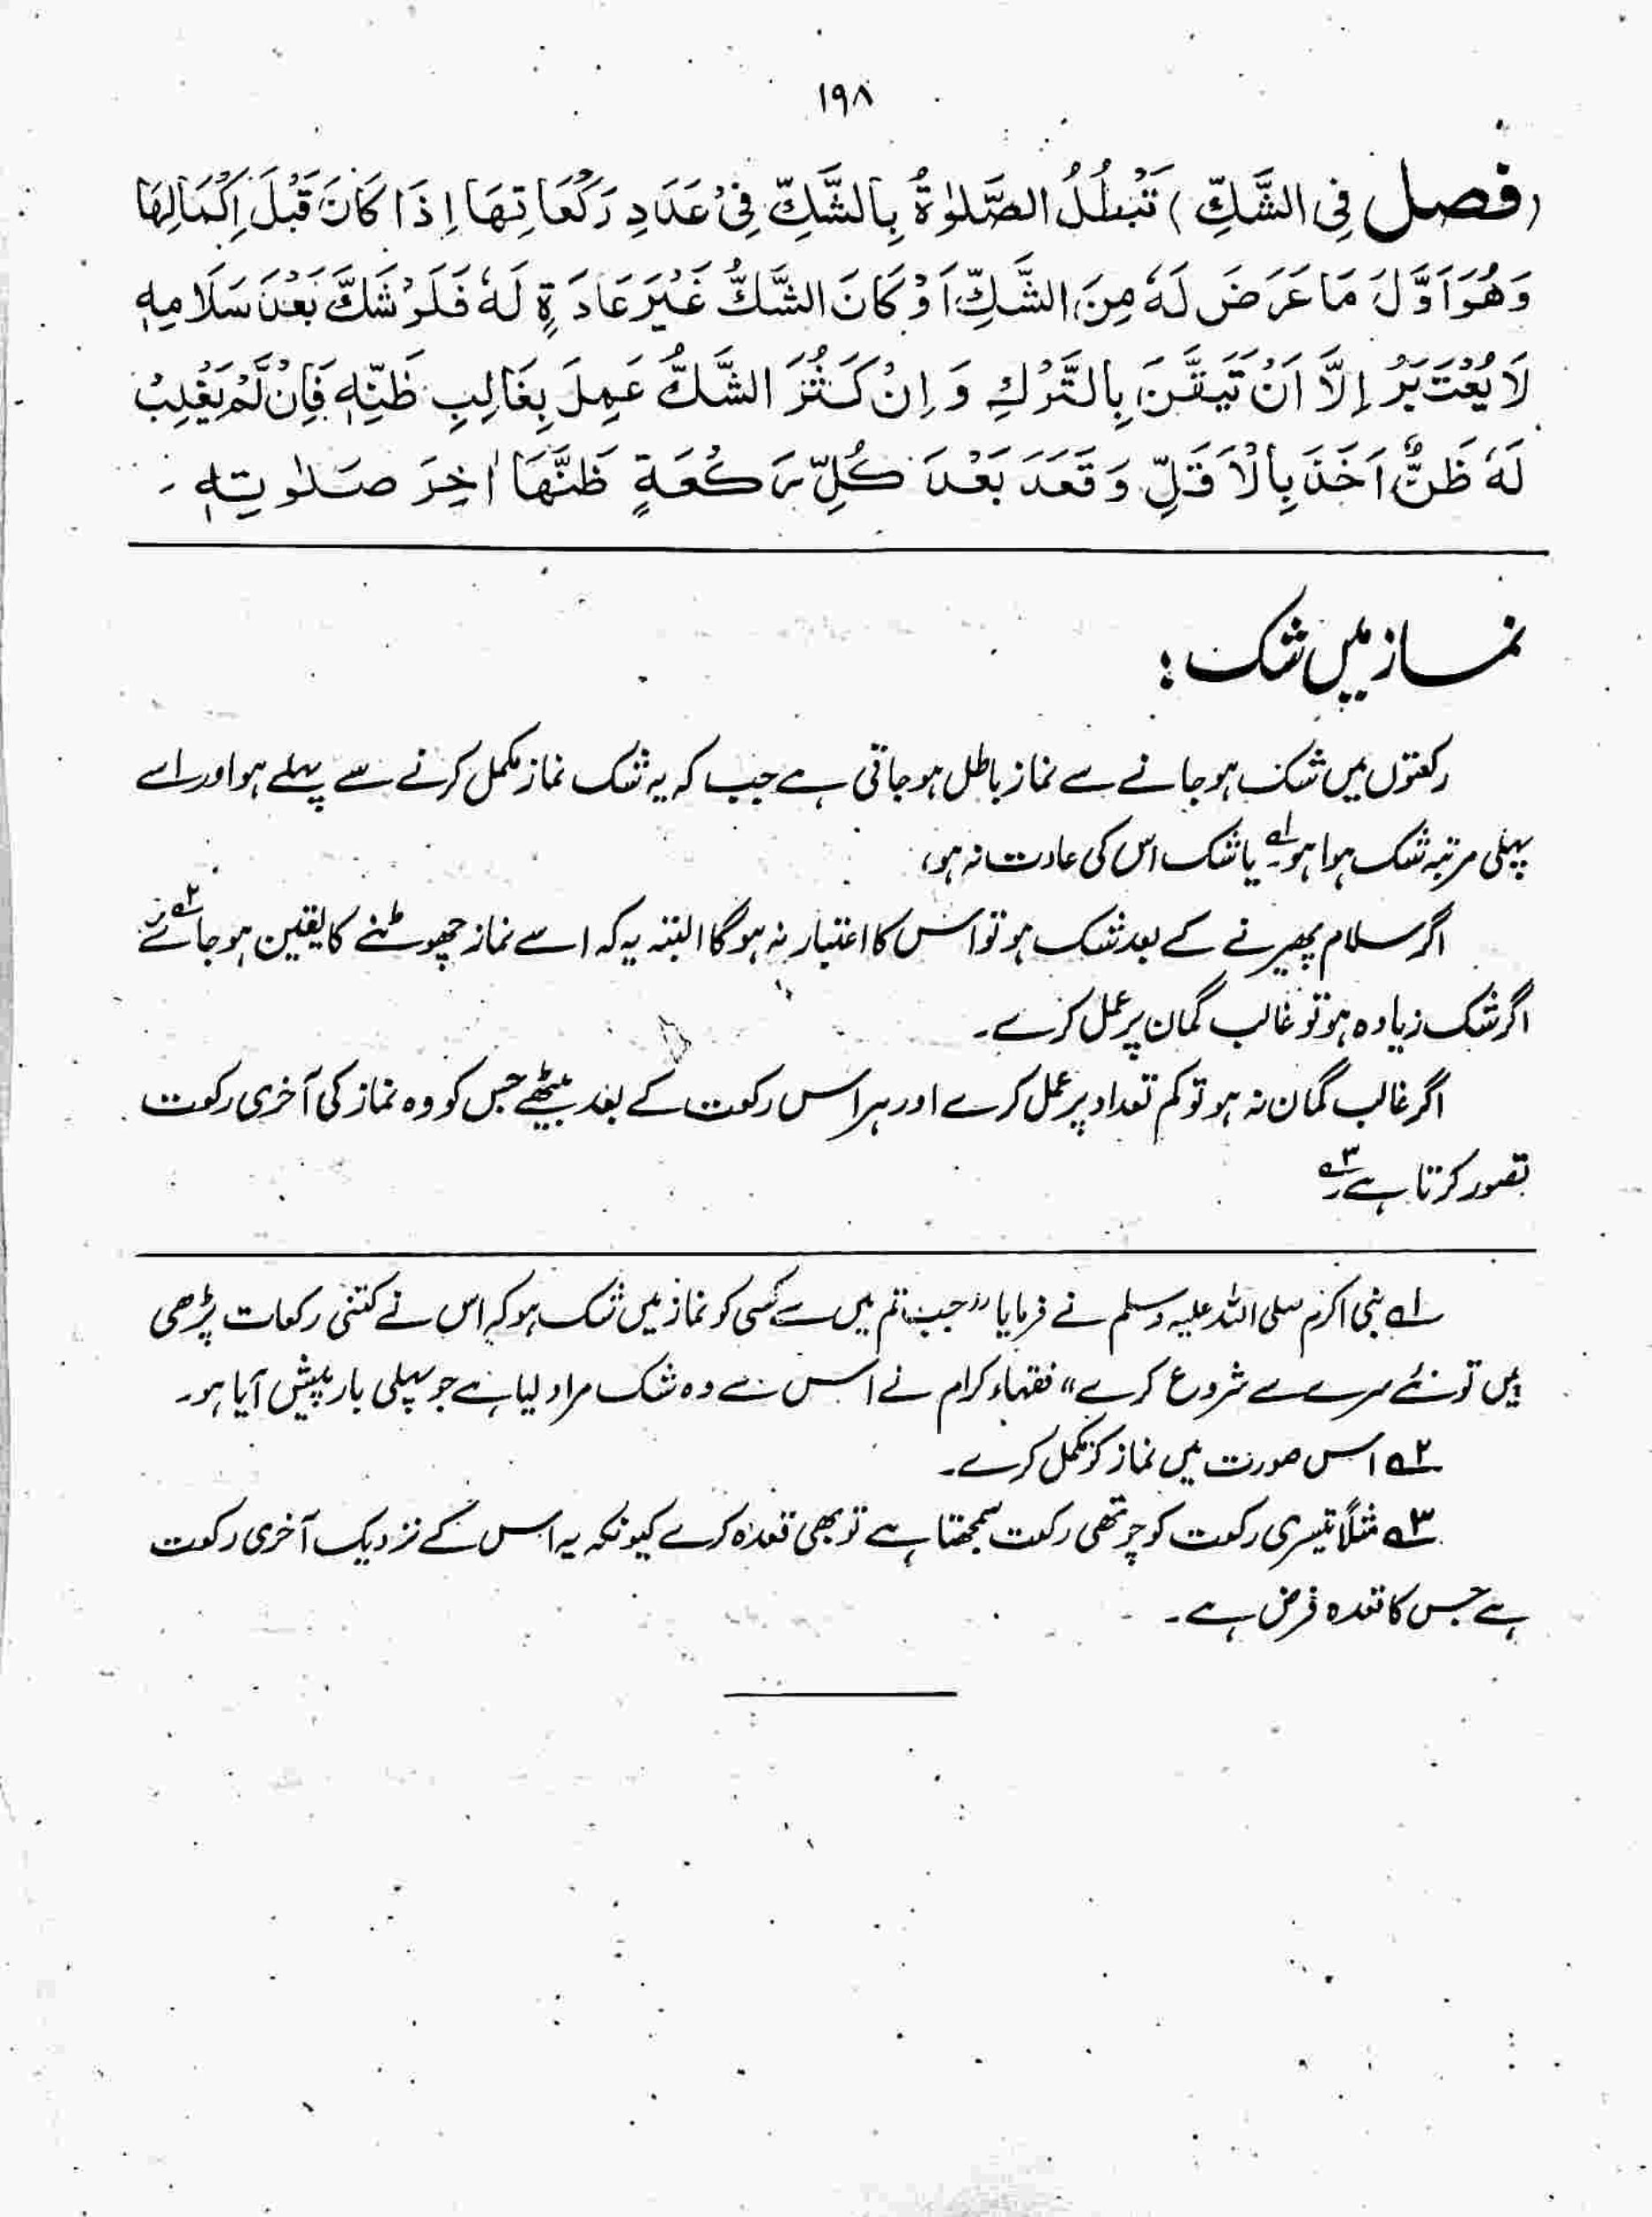 ۱۹۸
(فصل فِی الشَّكِّ) تَبْطُلُ الصَّلٰوةُ بِالشَّكِّ فِیْ عَدَدِ رَكْعَاتِهَا اِذَا كَانَ قَبْلَ اِكْمَالِهَا
وَهُوَ اَوَّلَ مَا عَرَضَ لَهٗ مِنَ الشَّكِّ اَوْ كَانَ الشَّكُّ غَيْرَ عَادَةٍ لَهٗ فَلَوْ شَكَّ بَعْدَ سَلَامِهٖ
لَا يُعْتَبَرُ اِلَّا اَنْ تَيَقَّنَ بِالتَّرْكِ وَ اِنْ كَثُرَ الشَّكُّ عَمِلَ بِغَالِبِ ظَنِّهٖ فَاِنْ لَّمْ يَغْلِبْ
لَهٗ ظَنٌّ اَخَذَ بِالْاَقَلِّ وَقَعَدَ بَعْدَ كُلِّ رَكْعَةٍ ظَنَّهَا اٰخِرَ صَلٰوتِهٖ ۔
نماز میں شک :
رکعتوں میں شک ہو جانے سے نماز باطل ہو جاتی ہے جب کہ یہ شک نماز مکمل کرنے سے پہلے ہو اور اسے
پہلی مرتبہ شک ہوا ہو۱ یا شک اس کی عادت نہ ہو،
اگر سلام پھیرنے کے بعد شک ہو تو اس کا اعتبار نہ ہوگا البتہ یہ کہ اسے نماز چھوٹنے کا یقین ہو جائے۲
اگر شک زیادہ ہو تو غالب گمان پر عمل کرے۔
اگر غالب گمان نہ ہو تو کم تعداد پر عمل کرے اور ہر اس رکعت کے بعد بیٹھے جس کو وہ نماز کی آخری رکعت
تصور کرتا ہے۳
۱؎ نبی اکرم صلی اللہ علیہ وسلم نے فرمایا "جب تم میں سے کسی کو نماز میں شک ہو کہ اس نے کتنی رکعات پڑھی
ہیں تو نئے سرے سے شروع کرے" فقہاء کرام نے اس سے وہ شک مراد لیا ہے جو پہلی بار پیش آیا ہو۔
۲؎ اس صورت میں نماز کو مکمل کرے۔
۳؎ مثلاً تیسری رکعت کو چوتھی رکعت سمجھتا ہے تو بھی قعدہ کرے کیونکہ یہ اس کے نزدیک آخری رکعت
ہے جس کا قعدہ فرض ہے۔